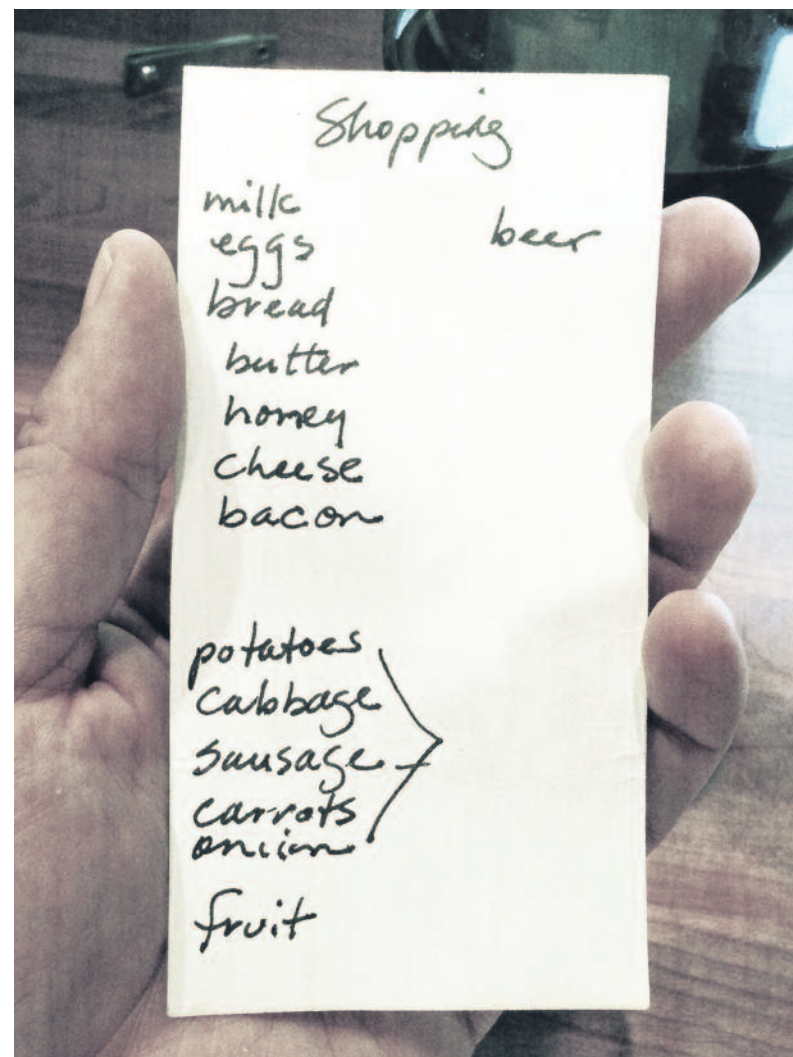 Shopping
milk
eggs
beer
bread
butter
honey
cheese
bacon
potatoes
cabbage
sausage
carrots
onion
fruit